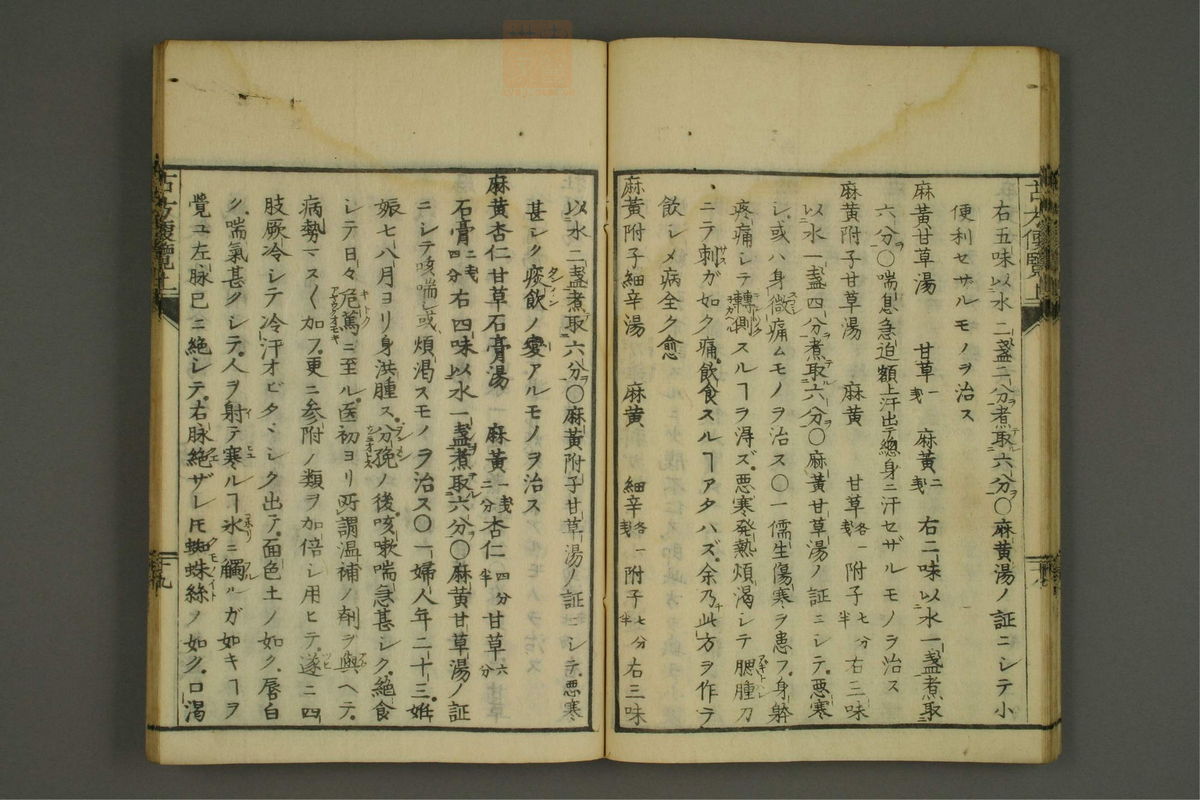 右五味以水二盞二分煮取六分〇麻黄湯ノ証ニシテ小
便利セザルモノヲ治ス
麻黄甘草湯 甘草一戔 麻黄二戔 右二味以水一盞煮取
六分〇喘息急迫額上汗出テ總身ニ汗セザルモノヲ治ス
麻黄附子甘草湯 麻黄 甘草各一戔 附子七分半 右三味
以水一盞四分煮取六分〇麻黄甘草湯ノ証ニシテ悪寒
シ或ハ身微痛ムモノヲ治ス〇一儒生傷寒ヲ患フ身躰
疼痛シテ轉側スルヿヲ得ズ悪寒発熱煩渇シテ腮腫刀
ニテ刺ガ如ク痛飲食スルヿアタハズ余乃此方ヲ作テ
飲シメ病全ク愈
麻黄附子細辛湯 麻黄 細辛各一戔 附子七分半 右三味
以水二盞煮取六分〇麻黄附子甘草湯ノ証ニシテ悪寒
甚シク痰飲ノ變アルモノヲ治ス
麻黄杏仁甘草石膏湯 麻黄一戔二分 杏仁四分半 甘草六分
石膏二戔四分 右四味以水一盞煮取六分〇麻黄甘草湯ノ証
ニシテ咳喘シ或煩渇スモノヲ治ス〇一婦人年二十三姙
娠七八月ヨリ身洪腫ス分娩ノ後咳嗽喘急甚シク絶食
シテ日々危篤ニ至ル医初ヨリ所謂温補ノ剤ヲ與ヘテ
病勢マス〱加フ更ニ参附ノ類ヲ加倍シ用ヒテ遂ニ四
肢厥冷シテ冷汗オビタヾシク出テ面色土ノ如ク唇白
ク喘氣甚クシテ人ヲ射テ寒ルヿ氷ニ觸ルガ如キヿヲ
覺ユ左脉已ニ絶シテ右脉絶ザレ𪜈蜘蛛絲ノ如ク口渇